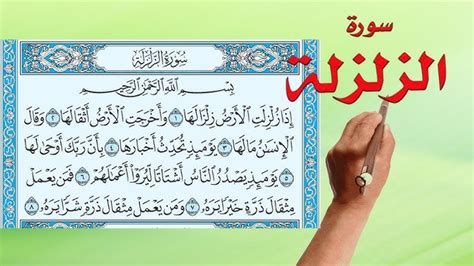 سورة
الزلزلة
سُورَةُ الزَّلْزَلَةِ
بِسْمِ اللَّهِ الرَّحْمَٰنِ الرَّحِيمِ
إِذَا زُلْزِلَتِ الْأَرْضُ زِلْزَالَهَا ١ وَأَخْرَجَتِ الْأَرْضُ أَثْقَالَهَا ٢ وَقَالَ
الْإِنسَٰنُ مَا لَهَا ٣ يَوْمَئِذٍ تُحَدِّثُ أَخْبَارَهَا ٤ بِأَنَّ رَبَّكَ أَوْحَىٰ لَهَا
٥ يَوْمَئِذٍ يَصْدُرُ النَّاسُ أَشْتَاتًا لِّيُرَوْا أَعْمَٰلَهُمْ ٦ فَمَن يَعْمَلْ
مِثْقَالَ ذَرَّةٍ خَيْرًا يَرَهُ ٧ وَمَن يَعْمَلْ مِثْقَالَ ذَرَّةٍ شَرًّا يَرَهُ ٨